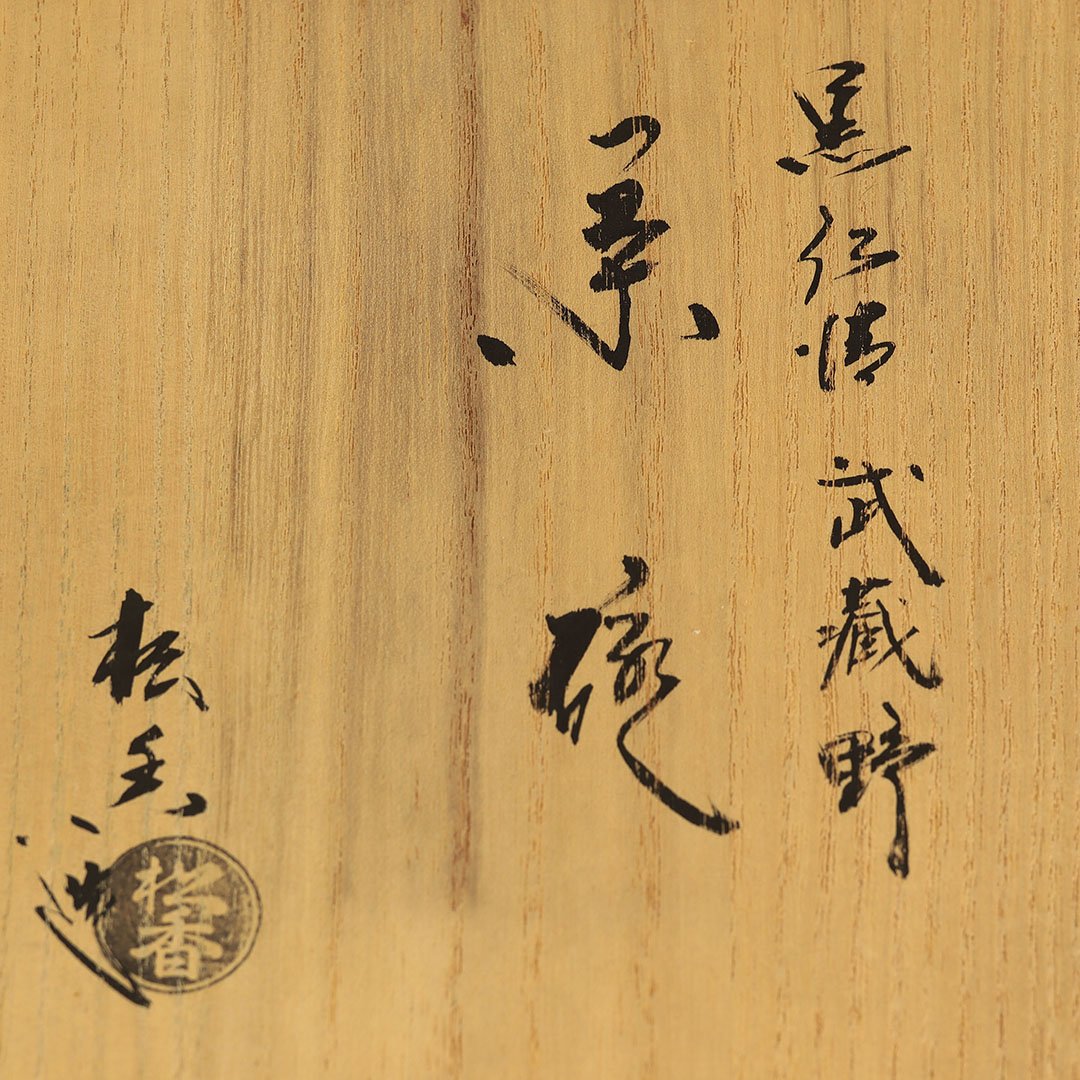 黒仁清武蔵野
茶碗
松香造
松香